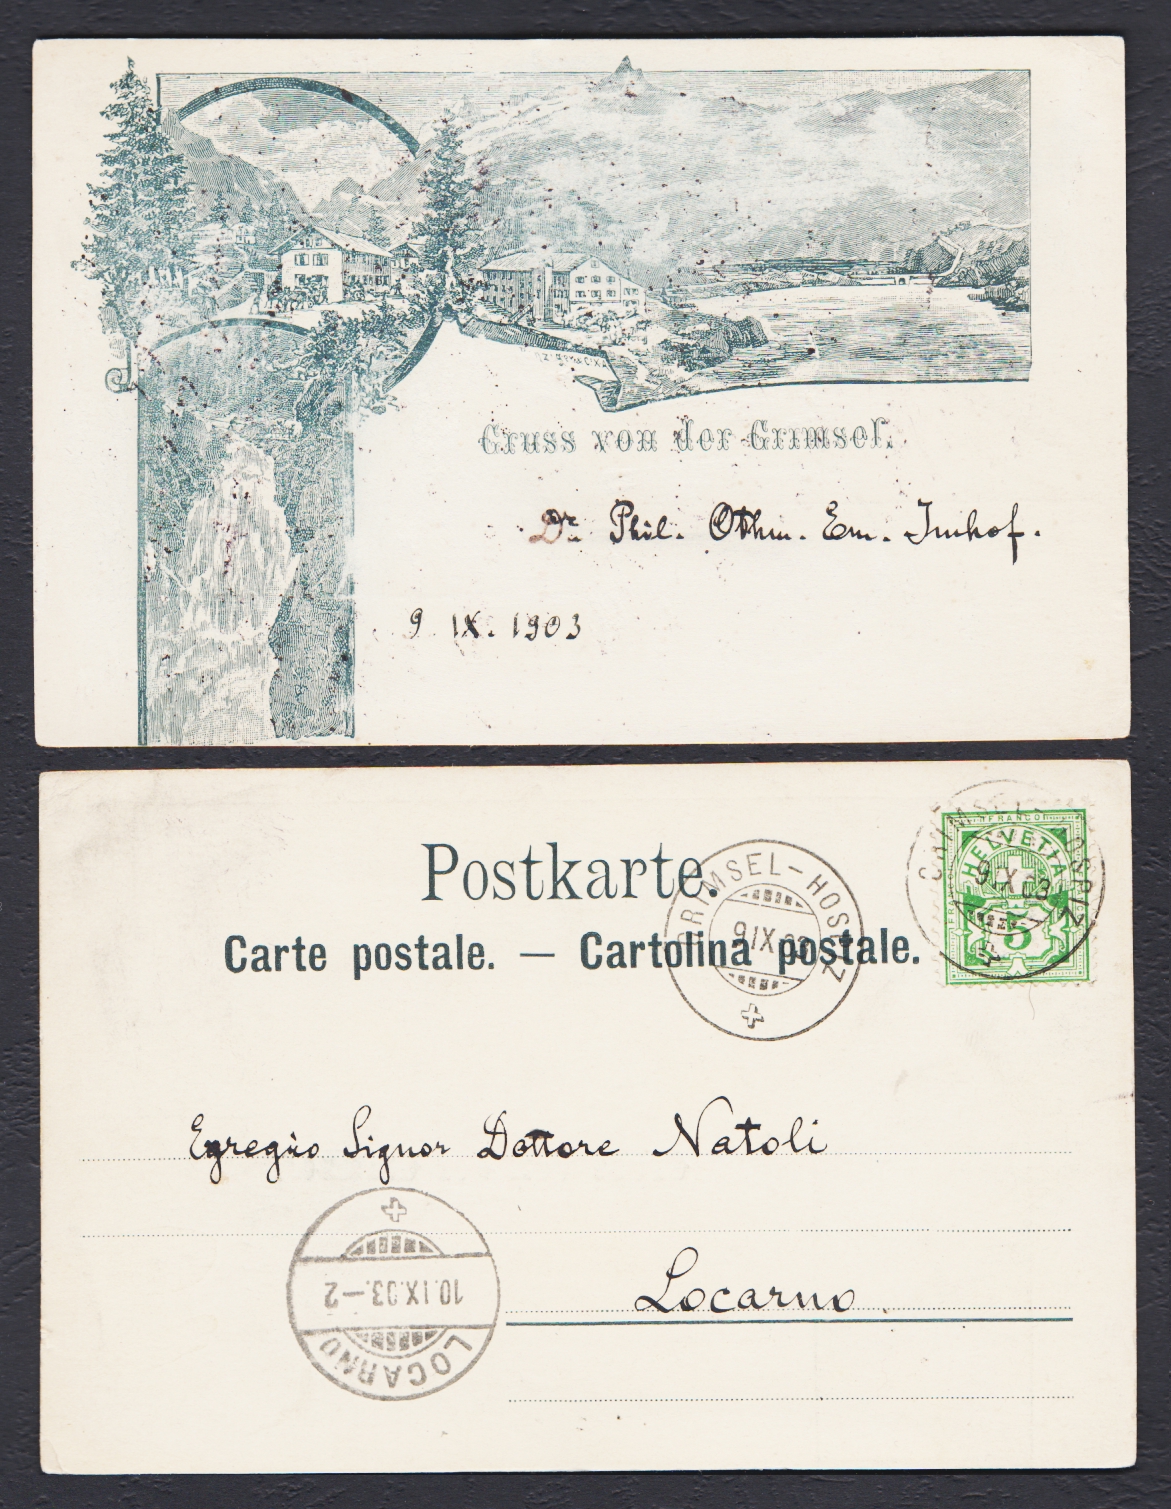 Gruss von der Grimsel.
Dr. Phil. Othm. Em. Imhof.
9 IX. 1903
Postkarte.
Carte postale. — Cartolina postale.
GRIMSEL-HOSPIZ
9 IX 03
GRIMSEL-HOSPIZ
9 IX 03
FRANCO
HELVETIA
5
Egregio Signor Dottore Natoli
Locarno.
10.IX.03.-2
LOCARNO